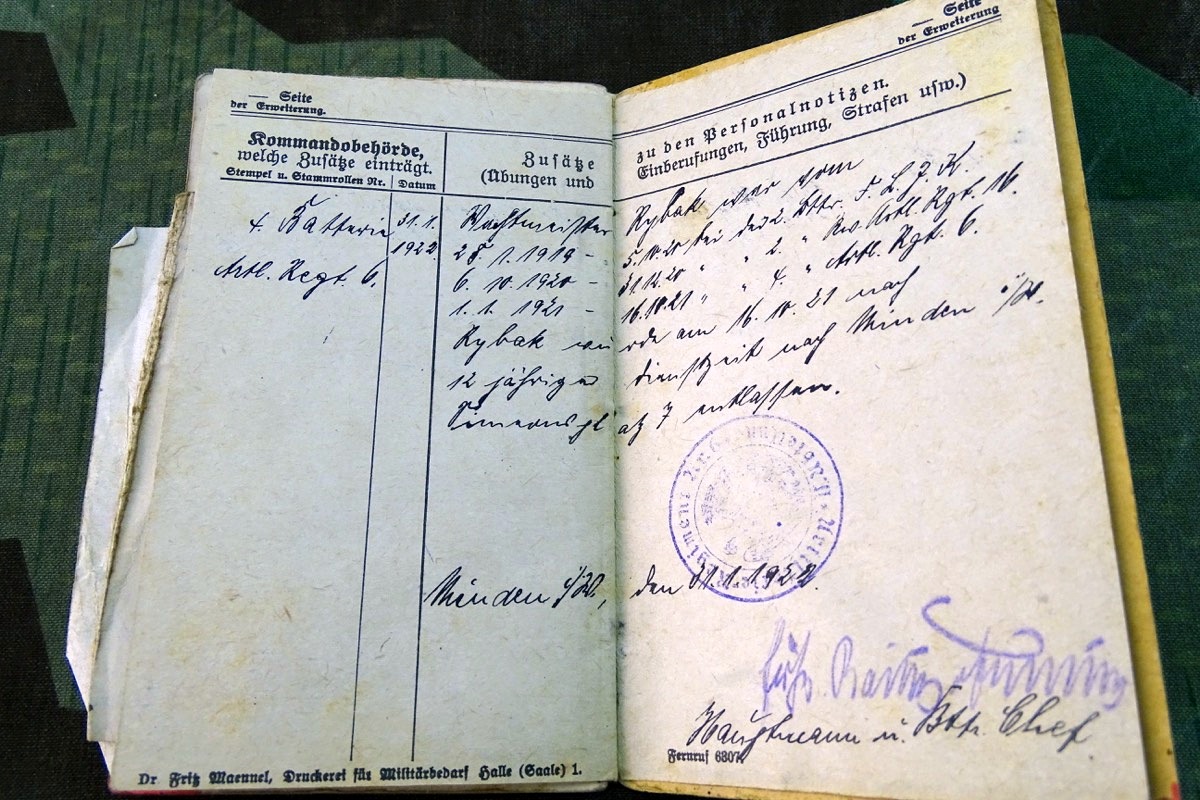 — Seite
der Erweiterung.
Kommandobehörde,
welche Zusätze einträgt.
Stempel u. Stammrollen Nr.
Datum
Zusätze
(Übungen und
4. Batterie
31.1.
1922
Artl. Regt. 6.
Wachtmeister
28.1.1919 –
6.10.1920 –
1.1.1921 –
Rybak wu
12 jähriger
Simeonspl
Minden i/W.,
Dr Fritz Maennel, Druckerei für Militärbedarf Halle (Saale) 1.
— Seite
der Erweiterung
zu den Personalnotizen.
Einberufungen, Führung, Strafen usw.)
Rybak war vom
5.10.20 bei der 2. Bttr. F. L. J. K.
31.12.20 " " 2. " Rw. Artl. Rgt. 16.
16.10.21 " " 4. " Artl. Rgt. 6.
rde am 16.10.21 nach
Dienstzeit nach Minden i/W.
atz 7 entlassen.
den 31.1.1922
Hauptmann u. Bttr. Chef
Fernruf 6807